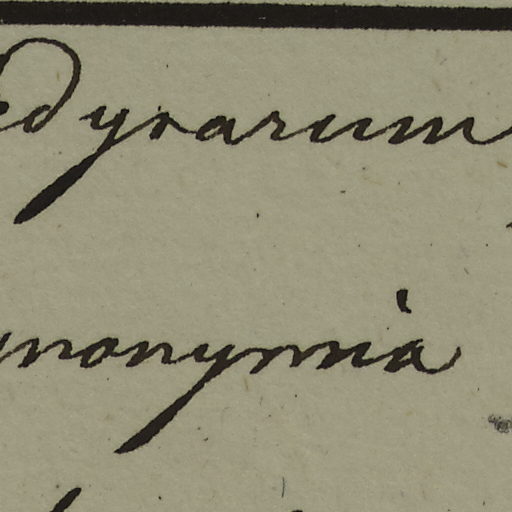 edyrarum
ynonymia